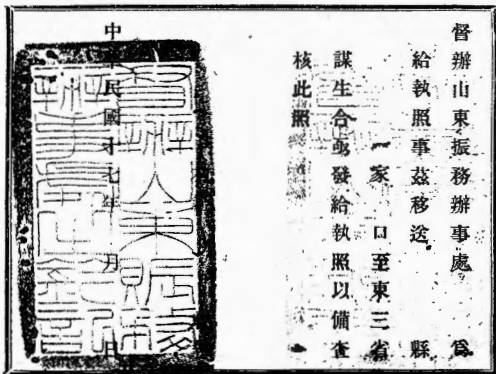 督辦山東振務辦事處 爲
給執照事茲移送 縣
一家 口至東三省
謀生合亟發給執照以備查
核此照
中華民國十七年 月 日
督辦山東賑務